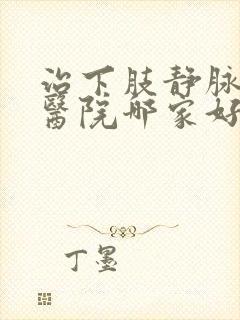 治下肢静脉
醫院哪家好
丁墨